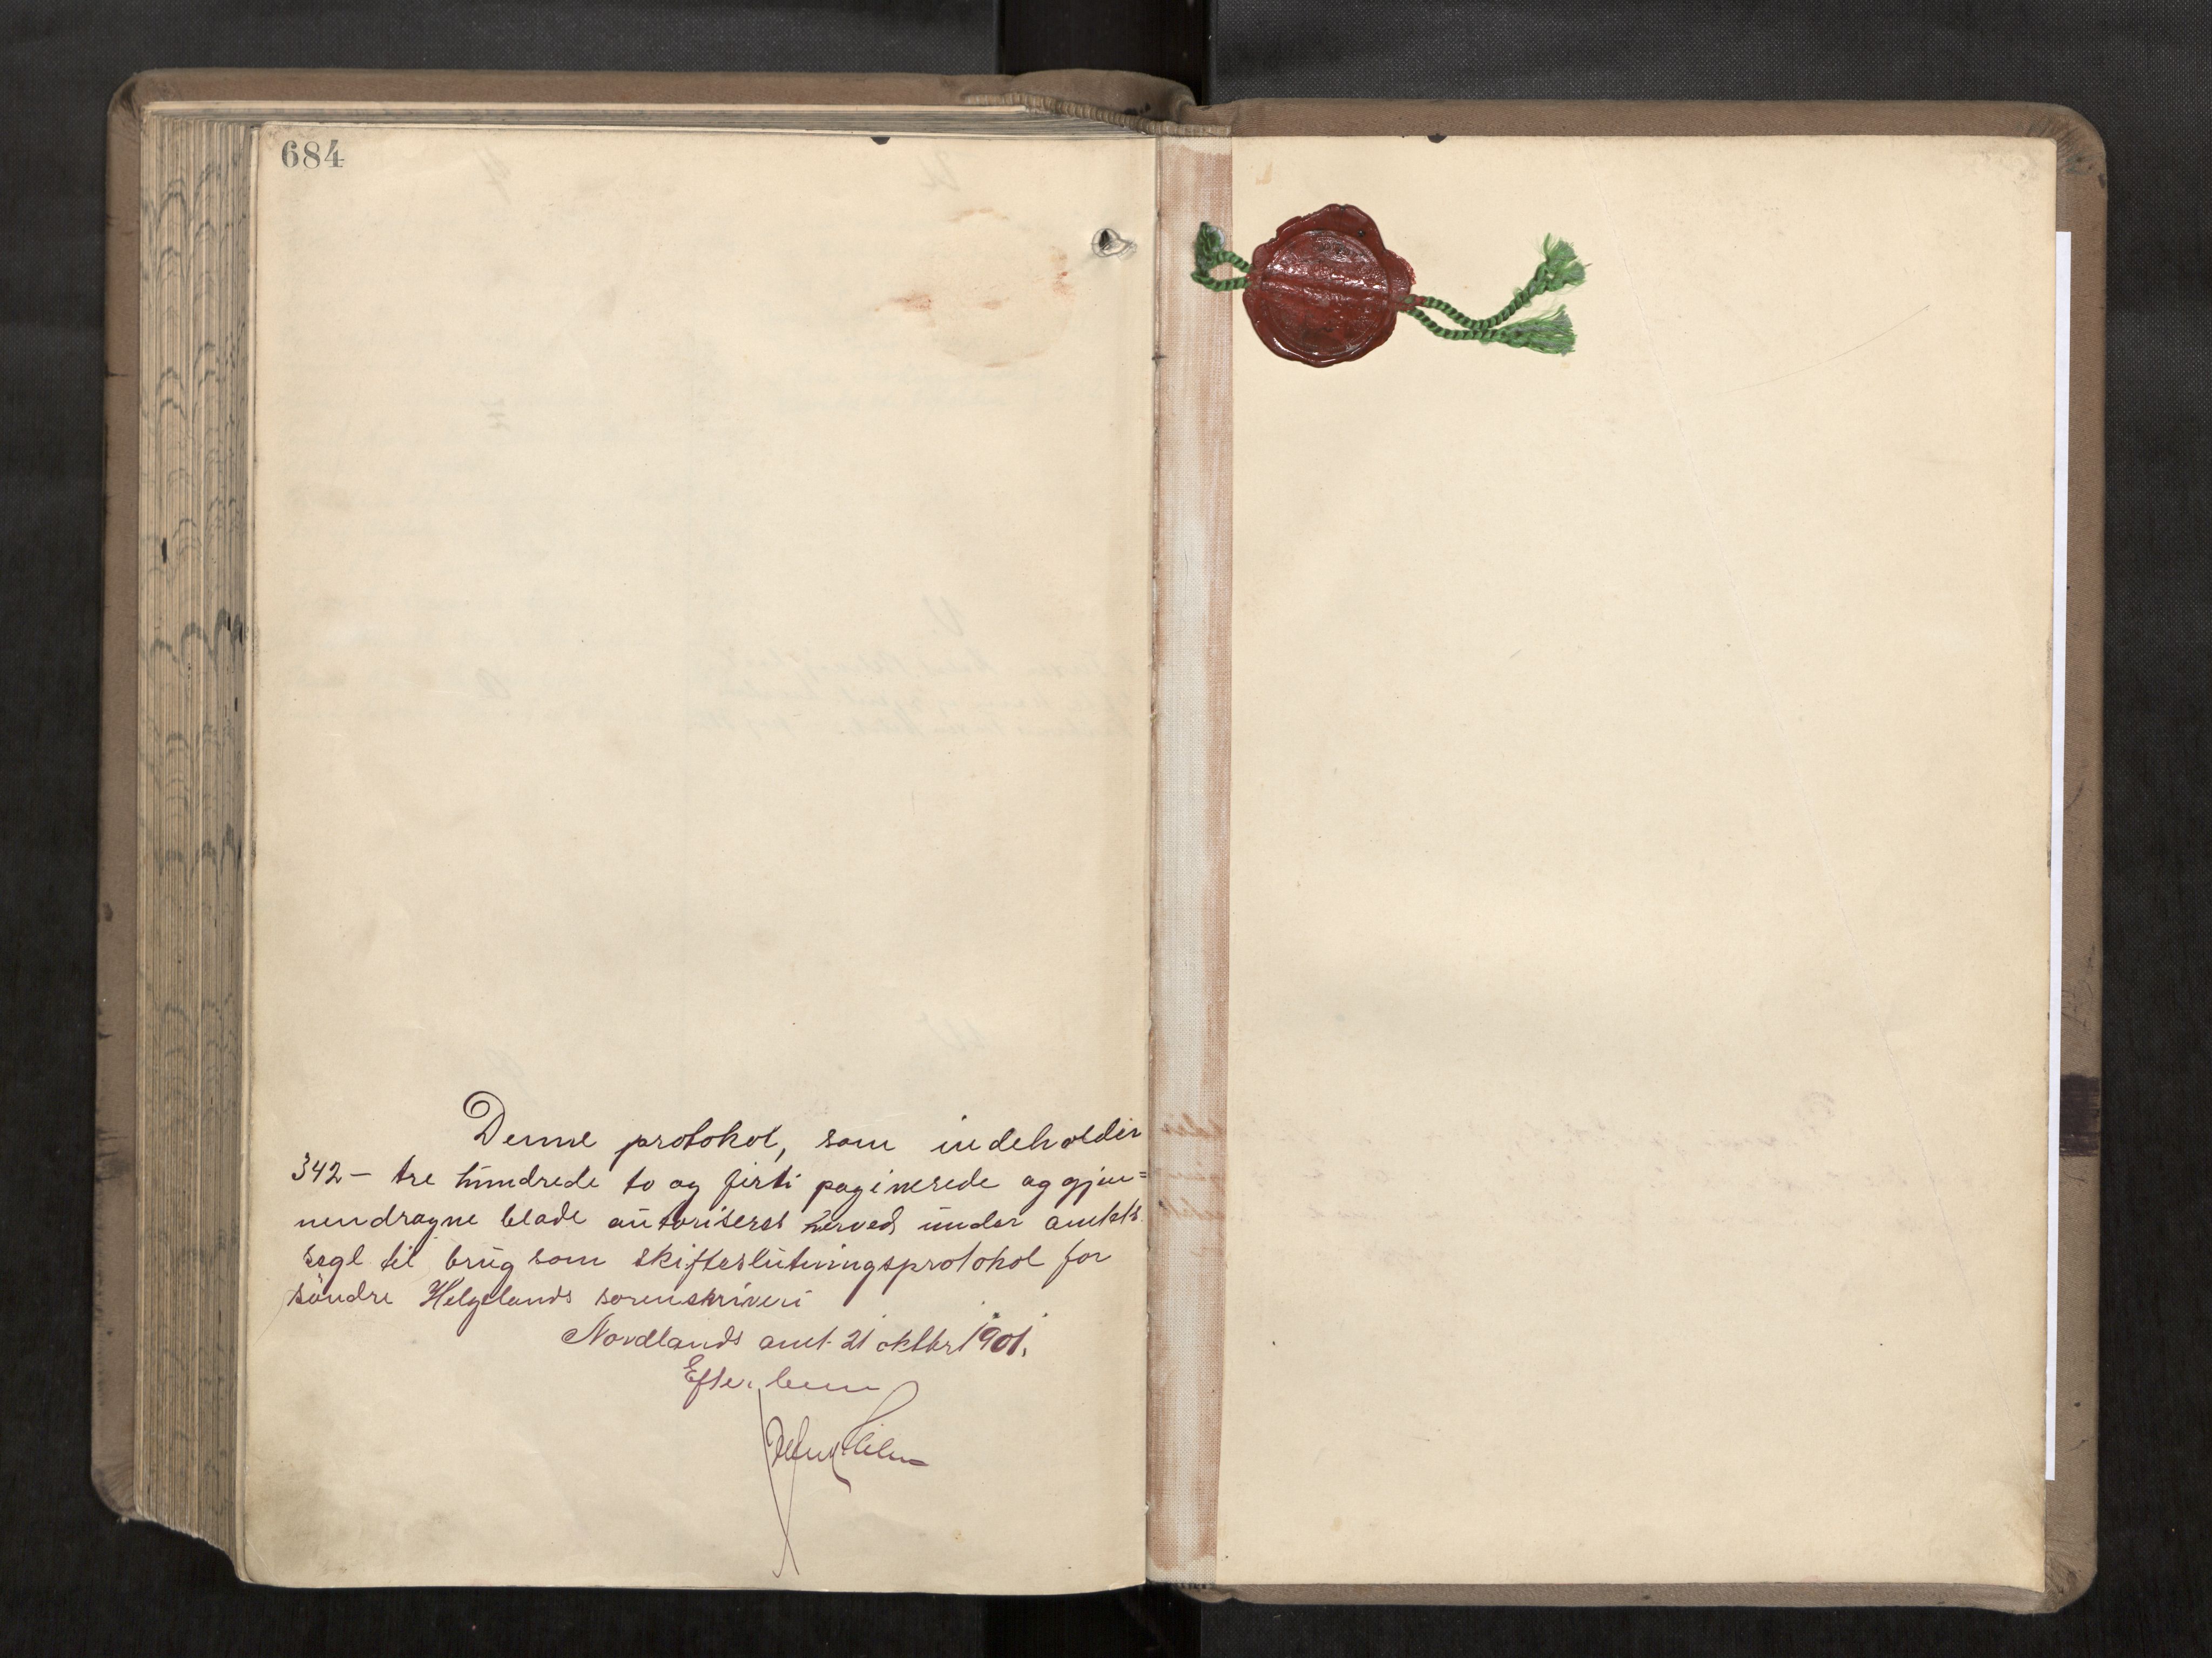 684
Denne protokol, som indeholder
342 – tre hundrede to og firti paginerede og gjen=
nendragne blade autoriseres herved under amtets
segl til brug som skifteslutningsprotokol for
söndre Helgelands sorenskriveri
Nordlands amt 21 oktbr 1901.
Efter bem